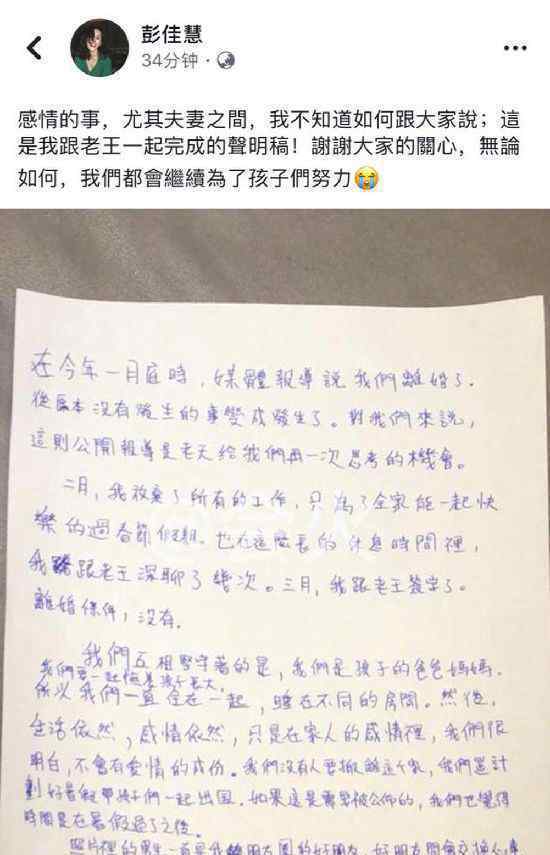 彭佳慧
34分钟
感情的事，尤其夫妻之間，我不知道如何跟大家說；這
是我跟老王一起完成的聲明稿！謝謝大家的關心，無論
如何，我們都會繼續為了孩子們努力😭
在今年一月底時，媒體報導說我們離婚了.
從原本沒有發生的事變成發生了。對我們來說，
這則公開報導是老天給我們再一次思考的機會。
二月，我放棄了所有的工作，只為了全家能一起快
樂的過春節假期. 也在這麼長的休息時間裡，
我跟老王深聊了幾次。三月，我跟老王簽字了。
離婚條件，沒有.
我們互相堅守著的是，我們是孩子的爸爸媽媽.
我們要一起陪著孩子長大.
所以我們一直住在一起，睡在不同的房間。然後，
生活依然，感情依然，只是在家人的感情裡，我們很
明白，不會有愛情的成份。我們沒有人要搬離這個家，我們還計
劃好暑假帶孩子們一起出國. 如果這是需要被公佈的，我們也覺得
時間是在暑假過了之後。
照片裡的男生一直是我朋友圈的好朋友，好朋友間會交換心事